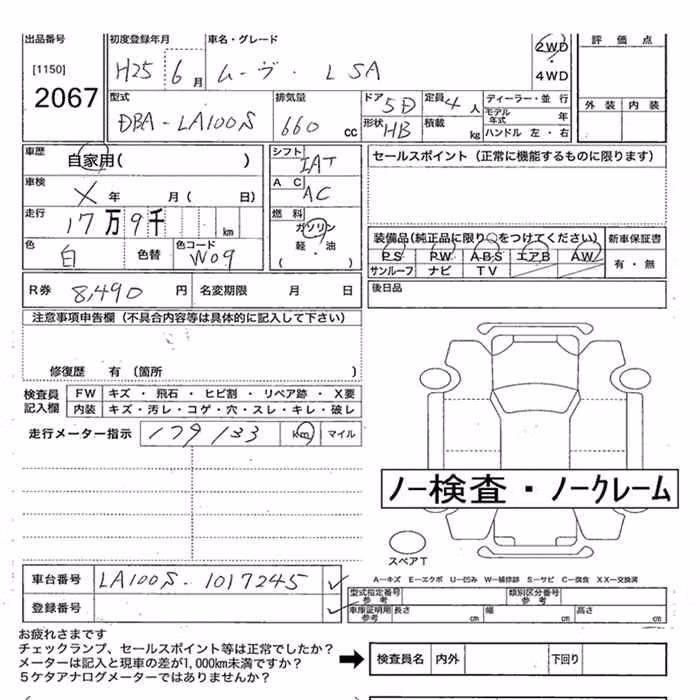 出品番号 初度登録年月 車名・グレード 2WD 評価点
[1150] H25 6月 ムーヴ・L SA ・ 4WD
2067 型式 排気量 ドア 5D 定員 4人 ディーラー・並行 外装 内装
DBA-LA100S 660 cc 形状 HB 積載 kg モデル年式 年
ハンドル 左・右
車歴 自家用( ) シフト IAT セールスポイント(正常に機能するものに限ります)
車検 X 年 月( 日) AC AC
走行 17万9千 km 燃料 ガソリン
軽・油
( )
色 白 色替 色コード W09
装備品(純正品に限り○をつけてください) 新車保証書
PS PW ABS エアB AW 有・無
サンルーフ ナビ TV
R券 8,490 円 名変期限 月 日 後日品
注意事項申告欄(不具合内容等は具体的に記入して下さい)
修復歴 有(箇所 )
検査員記入欄 FW キズ・飛石・ヒビ割・リペア跡・X要
内装 キズ・汚レ・コゲ・穴・スレ・キレ・破レ
走行メーター指示 179133 km マイル
ノー検査・ノークレーム
スペアT
A-キズ E-エクボ U-凹み W-補修跡 S-サビ C-腐食 XX-交換済
車台番号 LA100S-1017245
型式指定番号参考 類別区分番号参考
登録番号
車庫証明用参考 長さ cm 幅 cm 高さ cm
お疲れさまです
チェックランプ、セールスポイント等は正常でしたか?
メーターは記入と現車の差が1,000km未満ですか?
5ケタアナログメーターではありませんか?
検査員名 内外 下回り